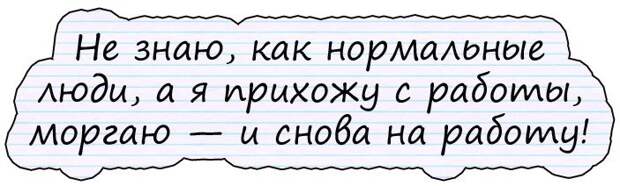 Не знаю, как нормальные
люди, а я прихожу с работы,
моргаю — и снова на работу!